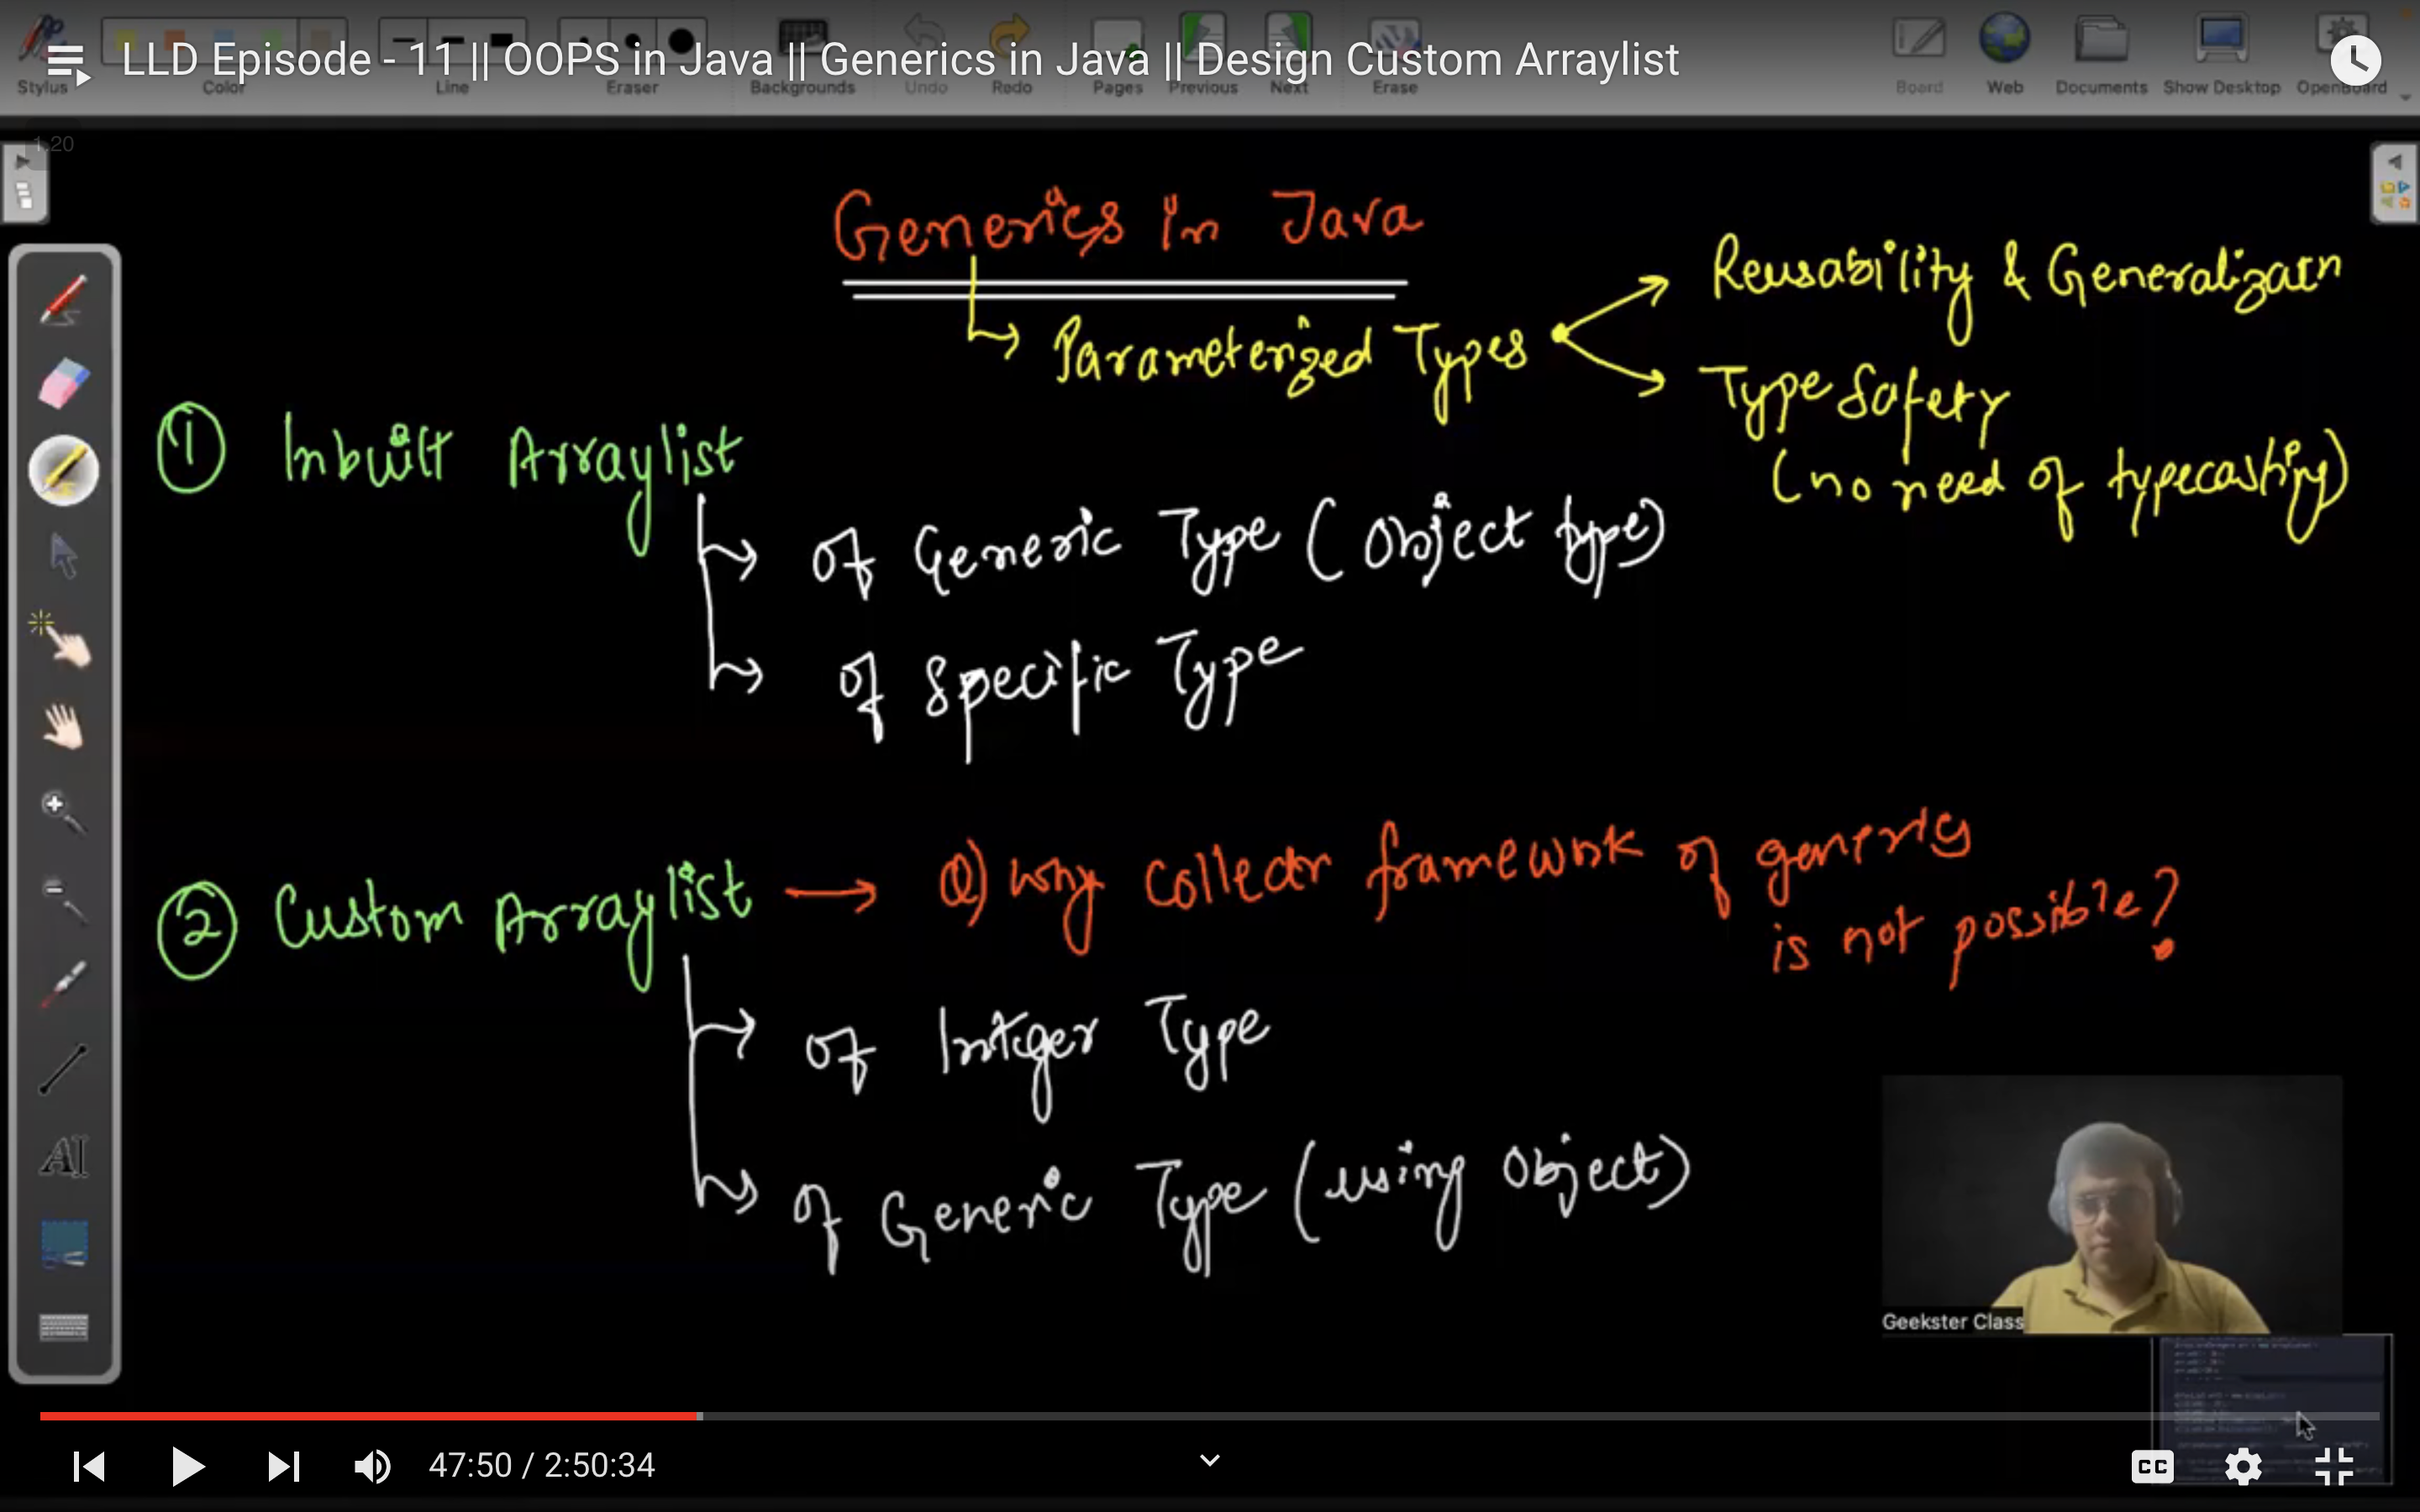 LLD Episode - 11 || OOPS in Java || Generics in Java || Design Custom Arraylist
Stylus Color Line Eraser Backgrounds Undo Redo Pages Previous Next Erase Board Web Documents Show Desktop OpenBoard
1.20
Generics in Java
Reusability & Generalizatn
Parameterized Types
Type Safety
(no need of typecasting)
① Inbuilt Arraylist
of Generic Type (Object type)
of Specific Type
② Custom Arraylist → Q) Why Collectn framework of generics
is not possible?
of Integer Type
of Generic Type (using Object)
Geekster Class
47:50 / 2:50:34
CC